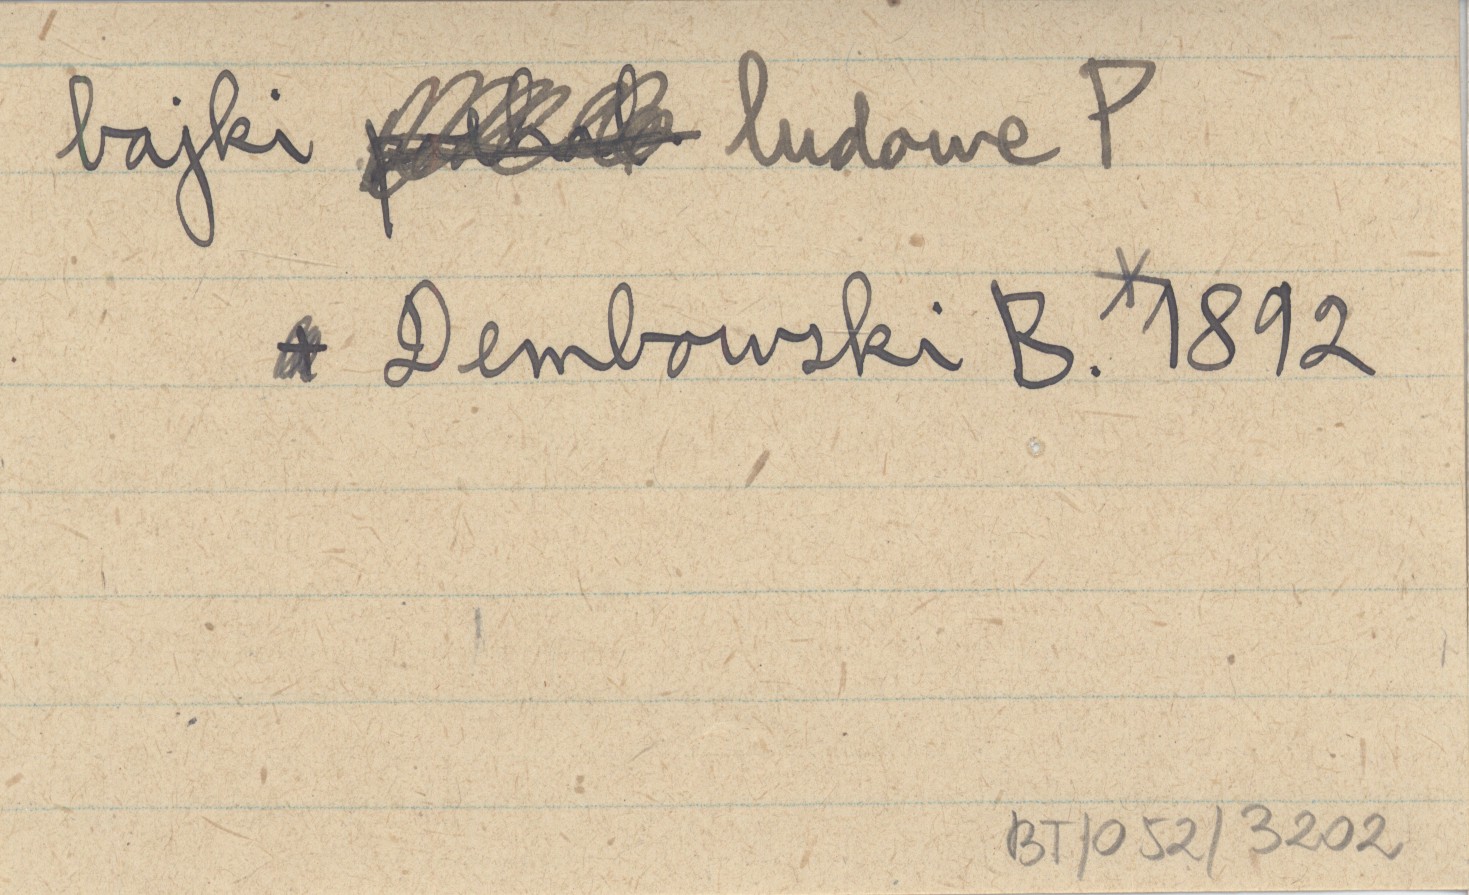 bajki ludowe P
Dembowski B.*1892
BT/052/3202